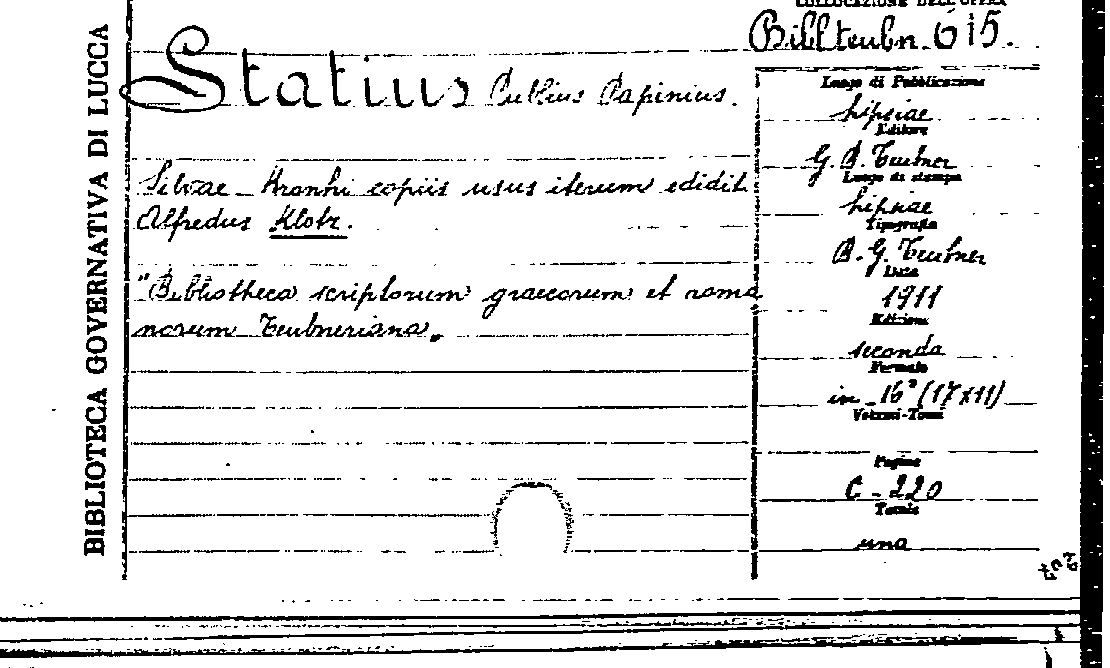 BIBLIOTECA GOVERNATIVA DI LUCCA
COLLOCAZIONE DELL'OPERA
Bibl teubn. 615.
Statius Publius Papinius.
Silvae - Krohni copiis usus iterum edidit
Alfredus Klotz.
"Bibliotheca scriptorum graecorum et roma
norum Teubneriana„
Luogo di Pubblicazione
Lipsiae
Editore
G. B. Teubner
Luogo di stampa
Lipsiae
Tipografia
B. G. Teubner
Data
1911
Edizione
seconda
Formato
in - 16° (17x11)
Volumi-Tomi
Pagine
C - 220
Tavole
una